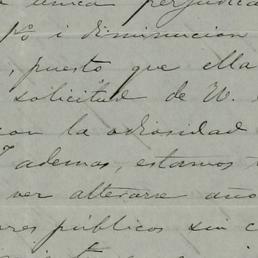 unica perjudica
po i disminucion
, puesto que ella
solicitud de W.
con la odiosidad
ademas, estamos
ver alterarse año
res públicos sin c